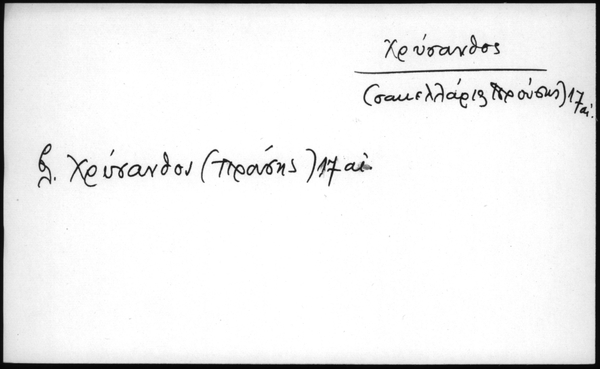 Χρύσανθος
(σακελλάριος Προύσης) 17 αἰ.
βλ. Χρύσανθον (Προύσης) 17 αἰ.